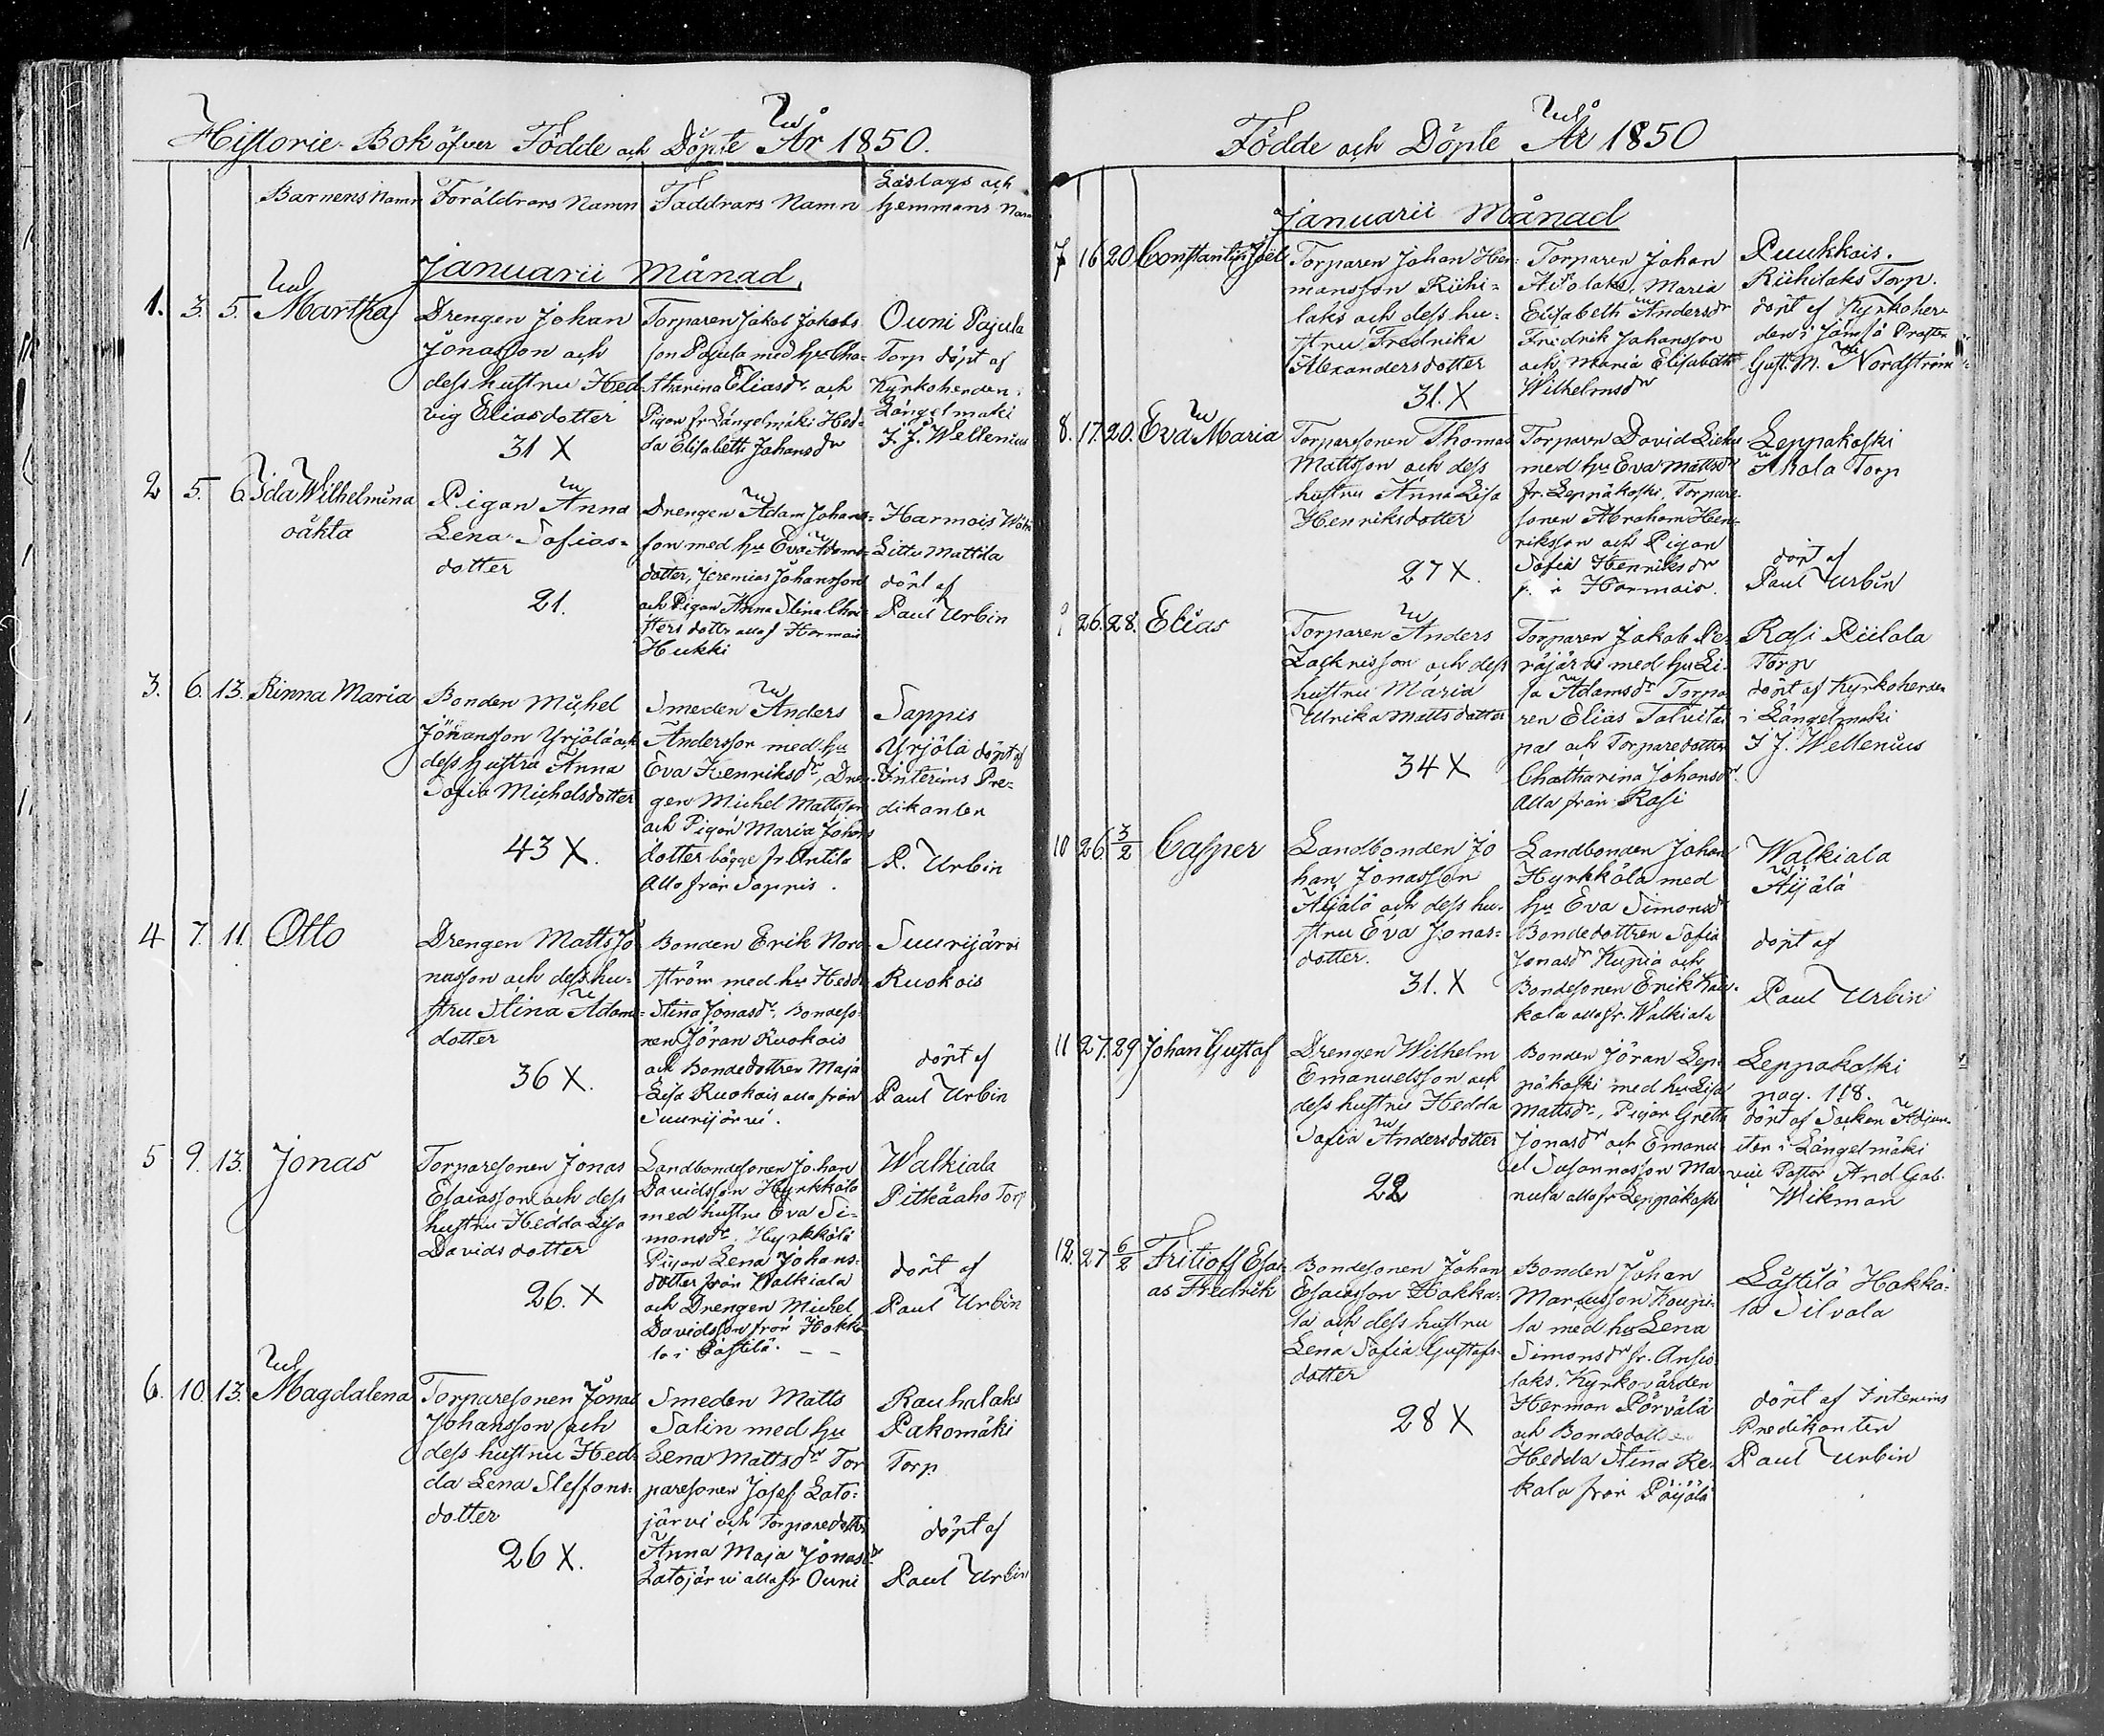 Historie-Bok öfver Födde och Döpte År 1850.
Barnens Namn
Föräldrars Namn
Faddrars Namn
hemmans Nam
Januarii Månad,
1. 3. 5. Martha
Drengen Johan
Jonasson och
dess hustru Hed-
vig Eliasdotter
31 X
Torparen Jakob Jakobs
son Pajula med hu Cha-
tharina Eliasdr och
Pigan fr Längelmäki Hed-
da Elisabeth Johansdr
Ouni Pajula
Torp döpt af
Kyrkoherden i
Längelmäki
F. J. Wellenius
2 5. 6. Ida Wilhelmina
oäkta
Pigan Anna
Lena Sofias-
dotter
21.
Drengen Adam Johans-
son med hu Eva Adams-
dotter, Jeremias Johansson
och Pigan Anna Stina Chri-
sters dotter alla f Harmois
Hukki
Harmois
Littu Mattila
döpt af
Paul Urbin
3. 6. 13. Rinna Maria
Bonden Michel
Johansson Yrjölä och
dess hustru Anna
Sofia Michelsdotter
43 X.
Smeden Anders
Andersson med hu
Eva Henriksdr, Dren-
gen Michel Mattsson
och Pigan Maria Johans
dotter bägge fr Antila
Alla från Sappis.
Sappis
Yrjölä döpt af
Interims Pre-
dikanten
P. Urbin
4 7. 11. Otto
Drengen Matts Jo
nasson och dess hu-
stru Stina Adams-
dotter
36 X.
Bonden Erik Nord-
ström med hu Hedda
Stina Jonasdr, Bondeso-
nen Jöran Ruokois
och Bondedottren Maja
Lisa Ruokois alla från
Suurijärvi.
Suurijärvi
Ruokois
döpt af
Paul Urbin
5 9. 13. Jonas
Torparesonen Jonas
Esaiasson och dess
hustru Hedda Lisa
Davidsdotter
26. X
Landbondesonen Johan
Davidsson Hyrkkölä
med hustru Eva Si-
monsdr. Hyrkkölä
Pigan Lena Johans-
dotter från Walkiala
och Drengen Michel
Davidsson från Hokka
la i Påstilä.
Walkiala
Pitkäaho Torp
döpt af
Paul Urbin
6. 10. 13. Magdalena
Torparesonen Jonas
Johansson och
dess hustru Hed-
da Lena Steffans-
dotter
26 X.
Smeden Matts
Salin med hu
Lena Mattsdr Tor
paresonen Josef Lato-
järvi och Torparedottr
Anna Maja Jonasdr
Latojärvi alla fr Ouni
Rauhalaks
Pakomäki
Torp
döpt af
Paul Urbin
Födde och Döpte År 1850
Januarii Månad
7 16 20 Constantin Joel
Torparen Johan Her-
mansson Riihi-
laks och dess hu-
stru Fredrika
Alexandersdotter
31. X
Torparen Johan
Maria
Elisabeth Andersdr
Fredrik Johansson
och Maria Elisabeth
Wilhelmsdr
Puukkois.
Riihilaks Torp.
döpt af Kyrkoher-
den i Jämsä Prosten
Gust. M. Nordström
8. 17. 20. Eva Maria
Torparesonen Thomas
Mattsson och dess
hustru Anna Lisa
Henriksdotter
27 X.
Torparen David
med hu Eva Mattsdr
fr. Leppäkoski, Torpare-
sonen Abraham Hen-
riksson och Pigan
Sofia Henriksdr
Harmois.
Leppäkoski
Akala Torp
döpt af
Paul Urbin
26. 28. Elias
Torparen Anders
Zachrisson och dess
hustru Maria
Ulrika Mattsdotter
34 X
Torparen Jakob Pe-
räjärvi med hu Li-
sa Adamsdr Torpa
ren Elias Talvita
pal och Torparedotter
Chatharina Johansdr
Alla från Rasi
Rasi Riilala
Torp
döpt af Kyrkoherden
i Längelmäki
F J. Wellenius
10 26. 3/2 Casper
Landbonden Jo
han Jonasson
Äijälä och dess hu-
stru Eva Jonas-
dotter.
31. X
Landbonden Johan
Hyrkkölä med
hu Eva Simonsdr
Bondedottren Sofia
Jonasdr Kupia och
Bondesonen Erik
kola alla fr. Walkiala
Walkiala
Äijälä
döpt af
Paul Urbin
11 27. 29 Johan Gustaf
Drengen Wilhelm
Emanuelsson och
dess hustru Hedda
Sofia Andersdotter
22
Bonden Jöran Lep-
päkoski med hu Lisa
Mattsdr, Pigan Greta
Jonasdr och Emanu
el Susannasson Ma
nula alla fr Leppäkoski
Leppäkoski
pag. 118.
döpt af Socken Adjun-
kten i Längelmäki
vice Pastor And Gab.
Wikman
12. 27 6/2 Fritioff Esai-
as Fredrik
Bondesonen Johan
Esaiasson Hokka-
la och dess hustru
Lena Sofia Gustafs-
dotter
28 X
Bonden Johan
Marcusson Kaupi-
la med hu Lena
Simonsdr fr. Ansio
laks. Kyrkovärden
Herman Pärvälä
och Bondedottren
Hedda Stina Re-
kola från Päijälä
Låstilä Hokka-
la Silvala
döpt af Interims
Predikanten
Paul Urbin